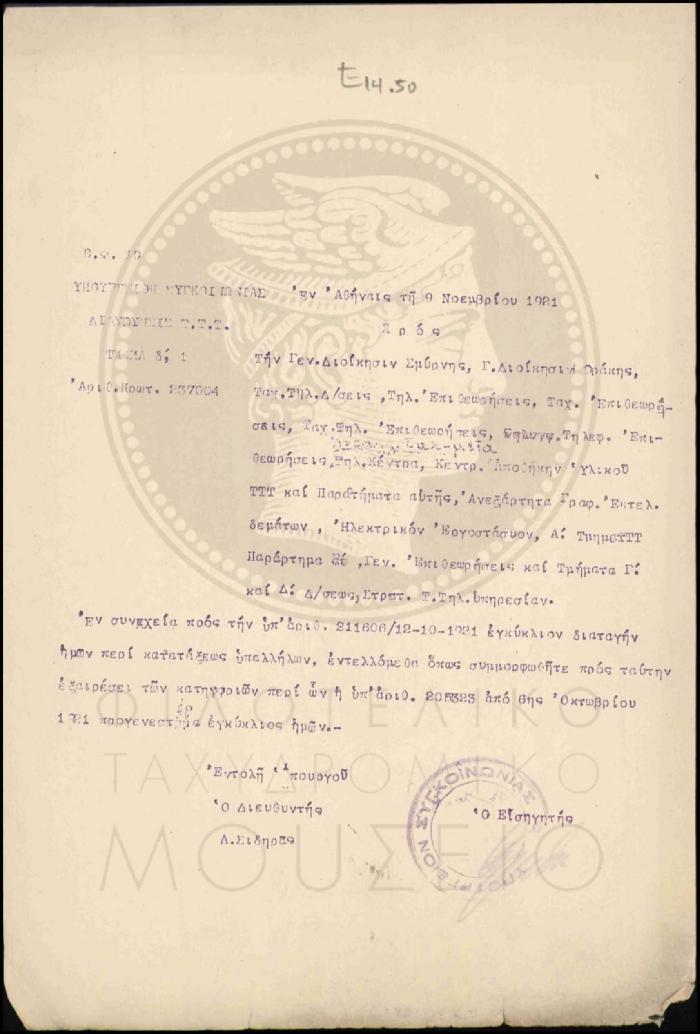 E14.50
Β.Φ. 10
ΥΠΟΥΡΓΕΙΟΝ ΣΥΓΚΟΙΝΩΝΙΑΣ
Ἐν Ἀθήναις τῇ 9 Νοεμβρίου 1921
ΔΙΕΥΘΥΝΣΙΣ Τ.Τ.Τ.
Πρός
ΤΜΗΜΑ δ; 1
Τήν Γεν.Διοίκησιν Σμύρνης, Γ.Διοίκησιν Θράκης,
Ἀριθ.Πρωτ. 237004
Ταχ.Τηλ.Δ/σεις ,Τηλ.Ἐπιθεωρήσεις, Ταχ. Ἐπιθεωρή-
σεις, Ταχ.Τηλ. Ἐπιθεωρήσεις, Τηλεφ. Ἐπι-
θεωρήσεις,Τηλ.Κέντρα, Κεντρ. Ἀποθήκην Ὑλικοῦ
ΤΤΤ καί Παρατήματα αὐτῆς,Ἀνεξάρτητα Γραφ. Ἐπιτελ.
δεμάτων , Ἠλεκτρικόν Ἐργοστάσυον, Α; ΤμημαΤΤΤ
Παράρτημα ,Γεν. Ἐπιθεωρήσεις καί Τμήματα Γ;
καί Δ; Δ/σεως,Στρατ. Τ.Τηλ.ὑπηρεσίαν.
Ἐν συνεχείᾳ πρός τήν ὑπ'ἀριθ. 211606/12-10-1921 ἐγκύκλιον διαταγήν
ἡμῶν περί κατατάξεως ὑπαλλήλων, ἐντελλόμεθα ὅπως συμμορφωθῆτε πρός ταύτην
ἐξαιρέσει τῶν κατηγοριῶν περί ὧν ἡ ὑπ'ἀριθ. 205323 ἀπό 6ης Ὀκτωβρίου
1921 προγενεστέρα ἐγκύκλιος ἡμῶν.-
Ἐντολῇ Ὑπουργοῦ
Ὁ Διευθυντής
Ὁ Εἰσηγητής
Λ.Σιδηρᾶς
ΥΠΟΥΡΓΕΙΟΝ ΣΥΓΚΟΙΝΩΝΙΑΣ
ΦΙΛΟΤΕΛΙΚΟ
ΤΑΧΥΔΡΟΜΙΚΟ
ΜΟΥΣΕΙΟ